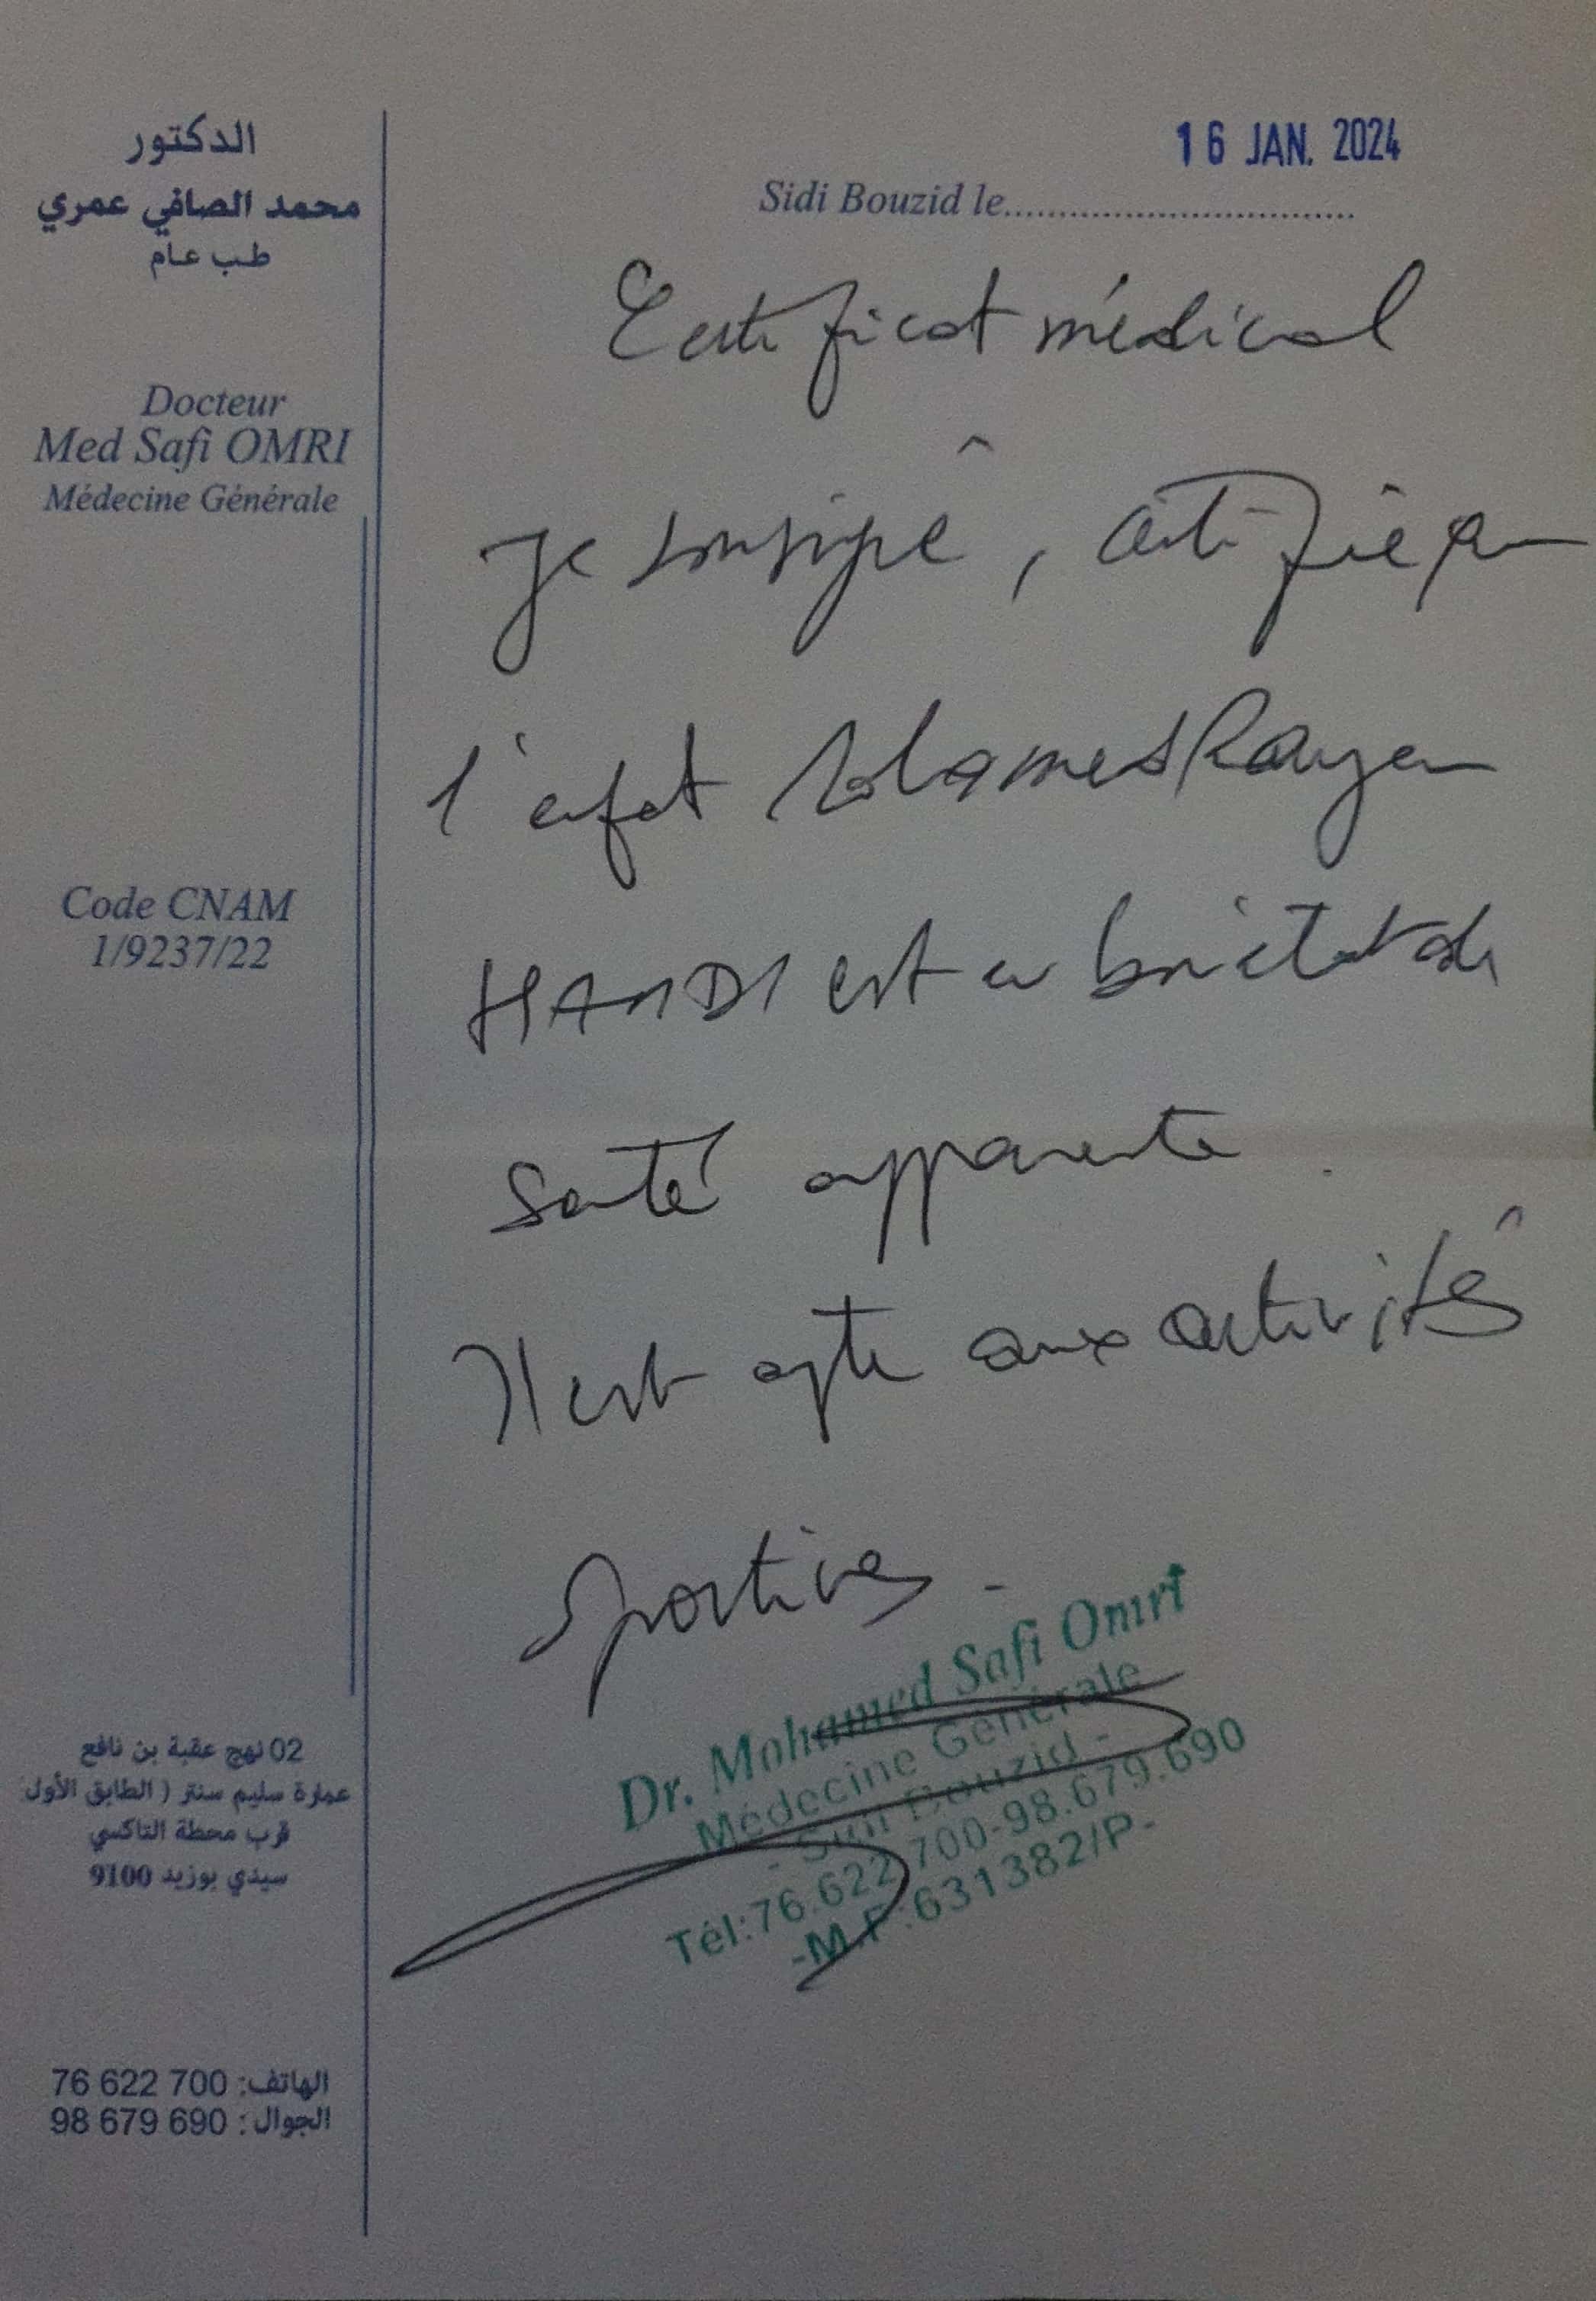 الدكتور
محمد الصافي عمري
طب عام
Docteur
Med Safi OMRI
Médecine Générale
Code CNAM
1/9237/22
02 نهج عقبة بن نافع
عمارة سليم سنتر ( الطابق الأول
قرب محطة التاكسي
سيدي بوزيد 9100
الهاتف: 76 622 700
الجوال: 98 679 690
16 JAN. 2024
Sidi Bouzid le
Certificat médical
Je soussigné, certifie que
l'enfant Mohamed Rayen
HAMDI est en bon état de
santé apparente.
Il est apte aux activités
sportives -
Dr. Mohamed Safi Omri
Médecine Générale
- Sidi Bouzid -
Tél:76.622.700-98.679.690
-M.F:631382/P-